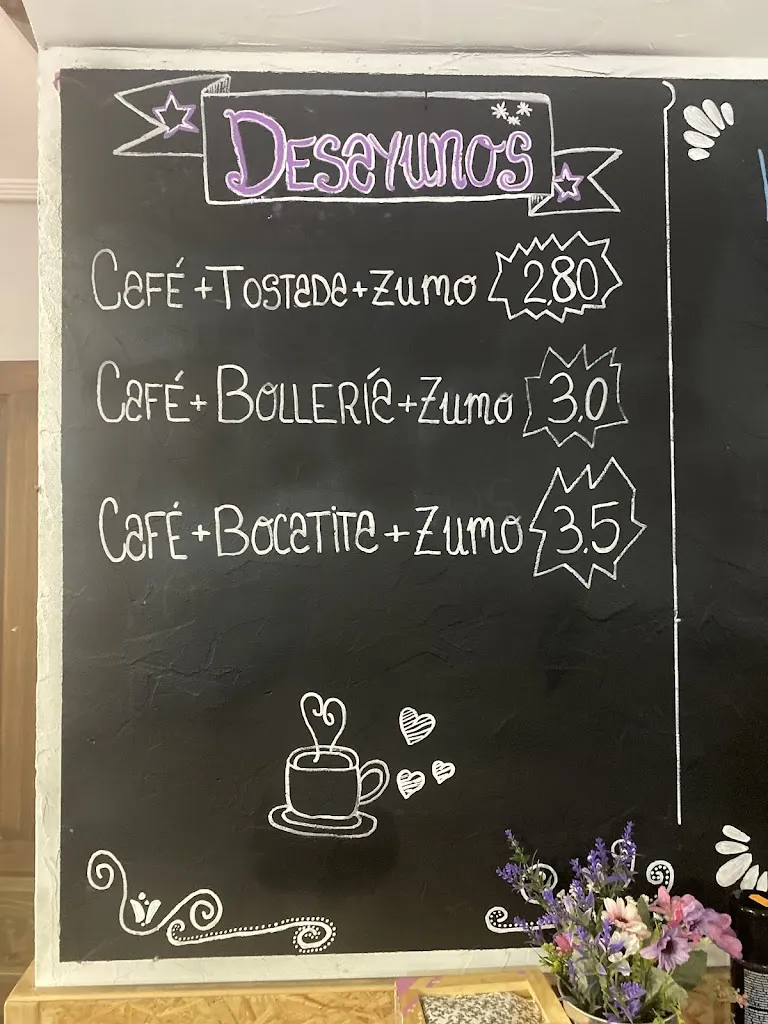 Desayunos
Café + Tostada + Zumo 2,80
Café + Bollería + Zumo 3,0
Café + Bocatita + Zumo 3,5